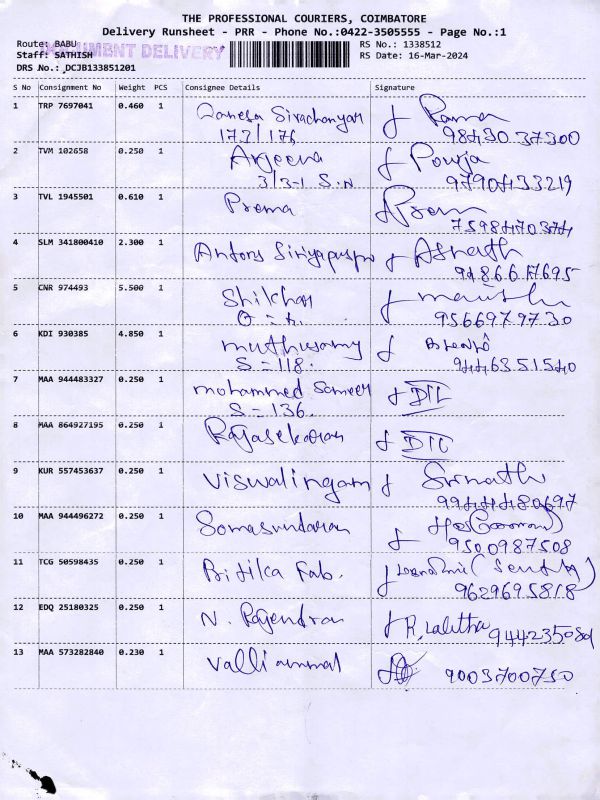 THE PROFESSIONAL COURIERS, COIMBATORE
Delivery Runsheet - PRR - Phone No.:0422-3505555 - Page No.:1
Route: BABU
DOCUMENT DELIVERY
RS No.: 1338512
Staff: SATHISH
RS Date: 16-Mar-2024
DRS No.: DCJB133851201
S No Consignment No Weight PCS Consignee Details Signature
1 TRP 7697041 0.460 1 Ganesa Sivachariyar Raman
173/176 98430 37300
2 TVM 102658 0.250 1 Arjeena Pooja
3/3-1 S.N 9790433219
3 TVL 1945501 0.610 1 Prema Prem
7598470374
4 SLM 341800410 2.300 1 Antony
9486617695
5 CNR 974493 5.500 1 Shikhar
9566979730
6 KDI 930385 4.850 1 muthusamy
S=118. 9446351540
7 MAA 944483327 0.250 1 mohammed Sameer
S=136.
8 MAA 864927195 0.250 1 Rajasekaran
9 KUR 557453637 0.250 1 Viswalingam Srinath
9944480697
10 MAA 944496272 0.250 1 Somasundaran
9500987508
11 TCG 50598435 0.250 1 Fab.
9629695818
12 EDQ 25180325 0.250 1 N. Rajendran R. Lalitha 944235081
13 MAA 573282840 0.230 1 Valliammal 9003700750